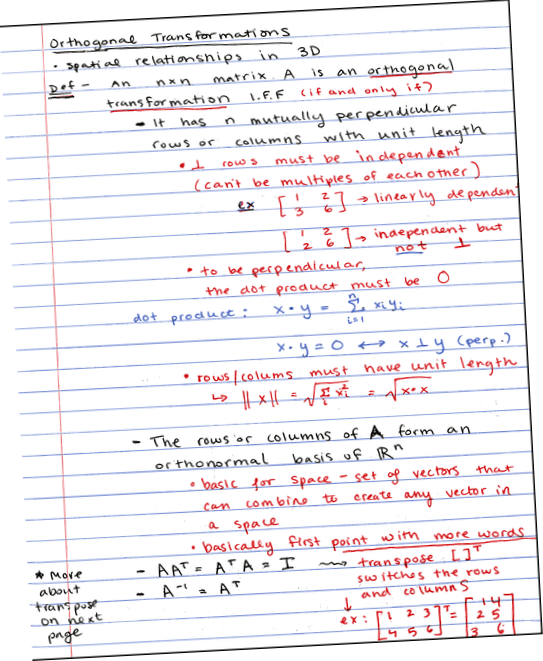 Orthogonal Transformations
• spatial relationships in 3D
Def - An n×n matrix A is an orthogonal
transformation I.F.F (if and only if)
- It has n mutually perpendicular
rows or columns with unit length
• ⊥ rows must be independent
(can't be multiples of each other)
ex [1 2
3 6] → linearly dependent
[1 2
2 6] → independent but
not ⊥
• to be perpendicular,
the dot product must be 0
dot product: x·y = n∑i=1 xiyi
x·y = 0 ↔ x ⊥ y (perp.)
• rows/colums must have unit length
↳ ||x|| = √∑i xi² = √x·x
- The rows or columns of A form an
orthonormal basis of ℝⁿ
• basic for space - set of vectors that
can combine to create any vector in
a space
• basically first point with more words
- AAᵀ = AᵀA = I ⟿ transpose []ᵀ
switches the rows
and columns
- A⁻¹ = Aᵀ
* More
about
transpose
on next
page
↓
ex: [1 2 3
4 5 6]ᵀ = [1 4
2 5
3 6]